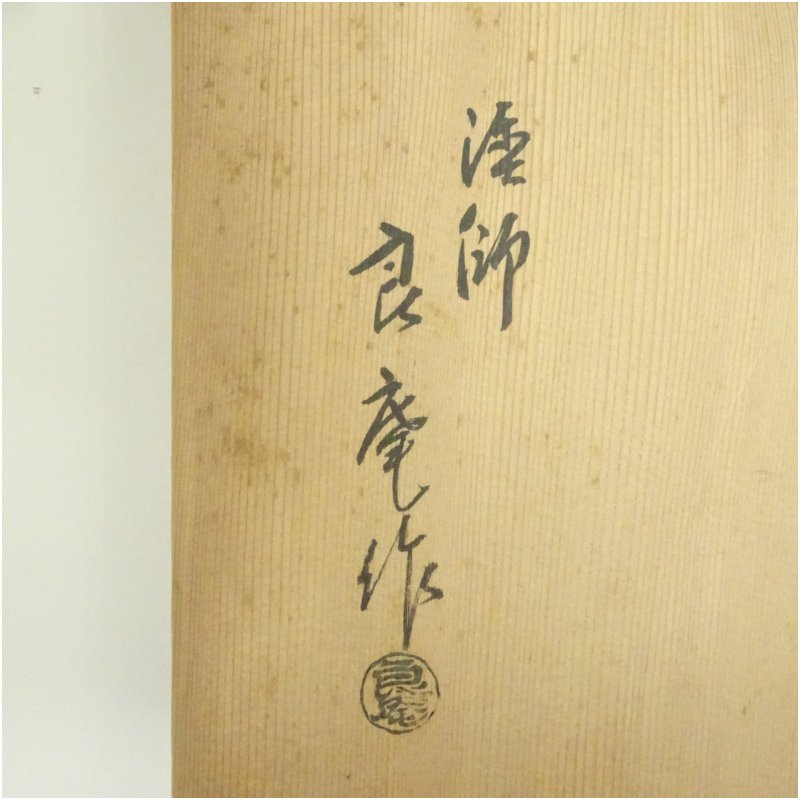 塗師
良庵作
良庵